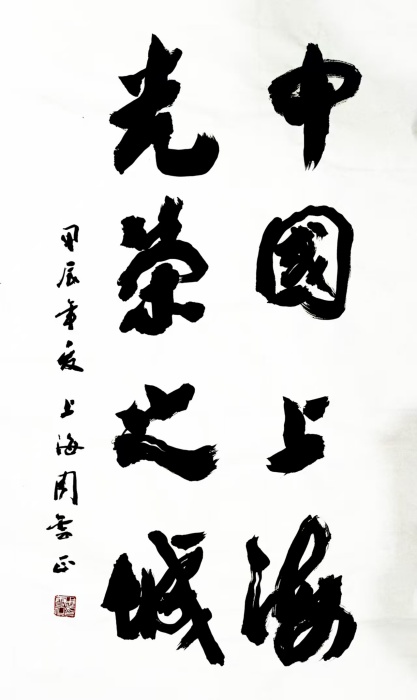 中國上海
光榮之城
甲辰年夏上海周雲正